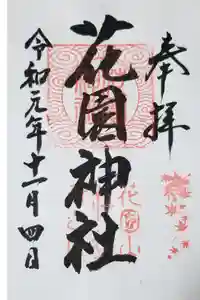 奉拝
花園神社
令和元年十一月四日
花園山